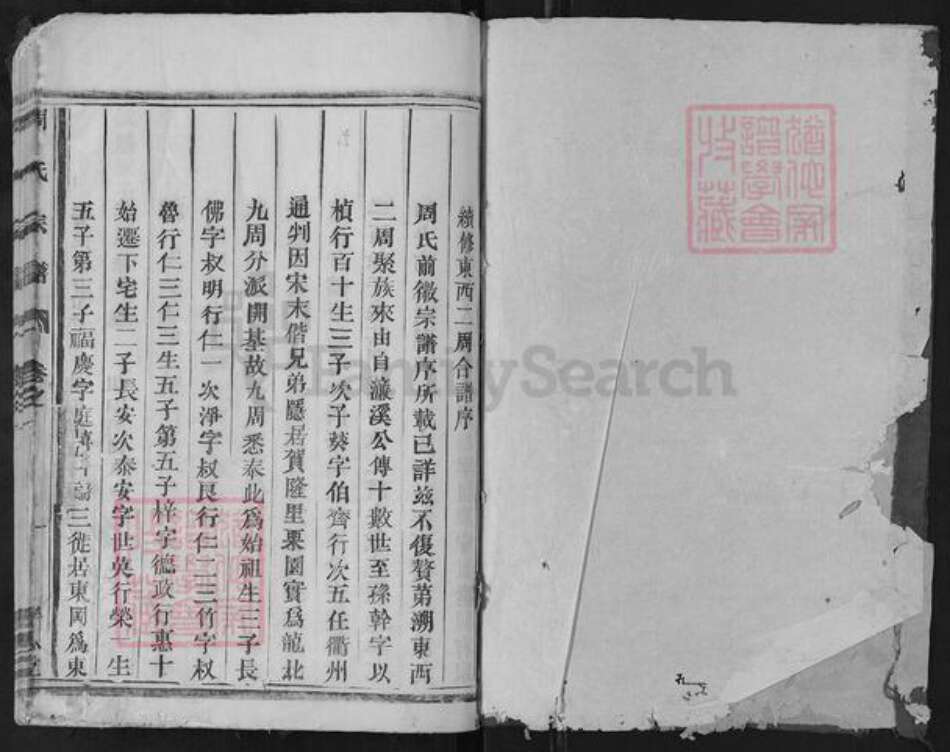 續修東西二周合譜序
周氏前徵宗譜序所載已詳茲不復贅第溯東西
二周聚族來由自濂溪公傳十數世至孫幹字以
楨行百十生三子次子葵字伯齊行次五任衢州
通判因宋末偕兄弟隱居賀隆里栗園實爲龍北
九周分派開基故九周悉奉此爲始祖生三子長
佛字叔明行仁一次淨字叔良行仁二三竹字叔
魯行仁三仁三生五子第五子梓字德政行惠十
始遷下宅生二子長安次泰安字世英行榮一生
五子第三子福慶字庭 三徙居東岡爲東
周氏宗譜 卷之
FamilySearch
猶他家
譜學會
收藏